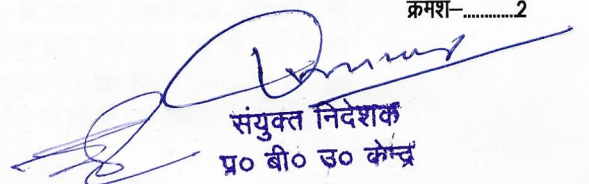 क्रमश–............2
संयुक्त निदेशक
प्र० बी० उ० केन्द्र